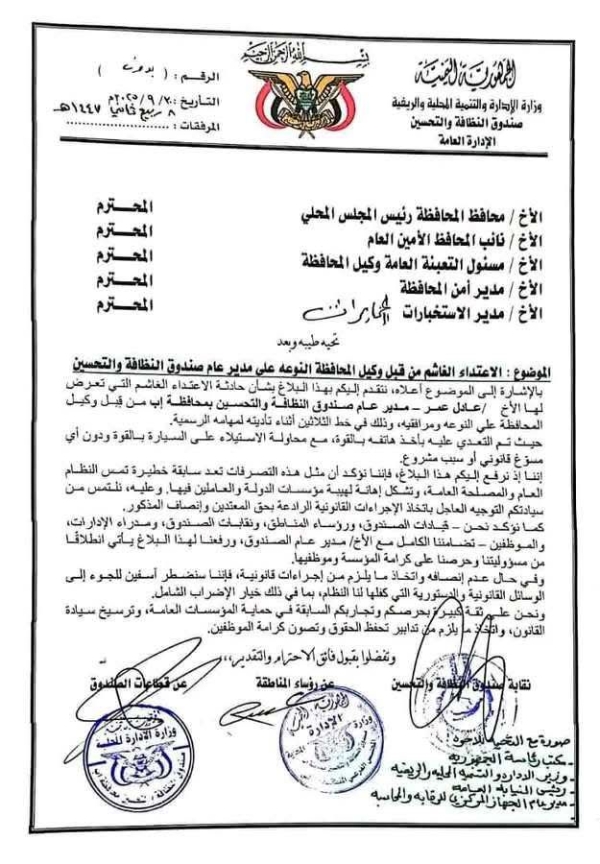 بسم الله الرحمن الرحيم
الجمهورية اليمنية
وزارة الإدارة والتنمية المحلية والريفية
صندوق النظافة والتحسين
الإدارة العامة
الرقم : ( بدون )
التاريخ : ٢٠٢٥/٩/٣٠م
٨ ربيع ثاني ١٤٤٧هـ
المرفقات :
الأخ / محافظ المحافظة رئيس المجلس المحلي المحترم
الأخ / نائب المحافظ الأمين العام المحترم
الأخ / مسئول التعبئة العامة وكيل المحافظة المحترم
الأخ / مدير أمن المحافظة المحترم
الأخ / مدير الاستخبارات المحترم
تحيه طيبه وبعد
الموضوع : الاعتداء الغاشم من قبل وكيل المحافظة النوعه على مدير عام صندوق النظافة والتحسين
بالإشارة إلى الموضوع أعلاه، نتقدم إليكم بهذا البلاغ بشأن حادثة الاعتداء الغاشم التي تعرض
لها الأخ /عادل عمر – مدير عام صندوق النظافة والتحسين بمحافظة إب من قبل وكيل
المحافظة علي النوعه ومرافقيه، وذلك في خط الثلاثين أثناء تأديته لمهامه الرسمية.
حيث تم التعدي عليه بأخذ هاتفه بالقوة، مع محاولة الاستيلاء على السيارة بالقوة ودون أي
مسوّغ قانوني أو سبب مشروع.
إننا إذ نرفع إليكم هذا البلاغ، فإننا نؤكد أن مثل هذه التصرفات تعد سابقة خطيرة تمس النظام
العام والمصلحة العامة، وتشكل إهانة لهيبة مؤسسات الدولة والعاملين فيها. وعليه، نلتمس من
سيادتكم التوجيه العاجل باتخاذ الإجراءات القانونية الرادعة بحق المعتدين وإنصاف المذكور.
كما نؤكد نحن – قيادات الصندوق، ورؤساء المناطق، ونقابات الصندوق، ومدراء الإدارات،
والموظفين – تضامننا الكامل مع الأخ/ مدير عام الصندوق، ورفعنا لهذا البلاغ يأتي انطلاقًا
من مسؤوليتنا وحرصنا على كرامة المؤسسة وموظفيها.
وفي حال عدم إنصافه واتخاذ ما يلزم من إجراءات قانونية، فإننا سنضطر آسفين للجوء إلى
الوسائل القانونية والدستورية التي كفلها لنا النظام، بما في ذلك خيار الإضراب الشامل.
ونحن على ثقة كبيرة بحرصكم وتجاربكم السابقة في حماية المؤسسات العامة، وترسيخ سيادة
القانون، واتخاذ ما يلزم من تدابير تحفظ الحقوق وتصون كرامة الموظفين.
وتفضلوا بقبول فائق الاحترام والتقدير،،،
نقابة صندوق النظافة والتحسين
عن رؤساء المناطقة
عن قطاعات الصندوق
صورة مع التحية للاخوة
- مكتب رئاسة الجمهورية
- وزير الادارة والتنمية المحلية والريفية
- رئيس النيابة العامة
- مدير عام الجهاز المركزي للرقابة والمحاسبة